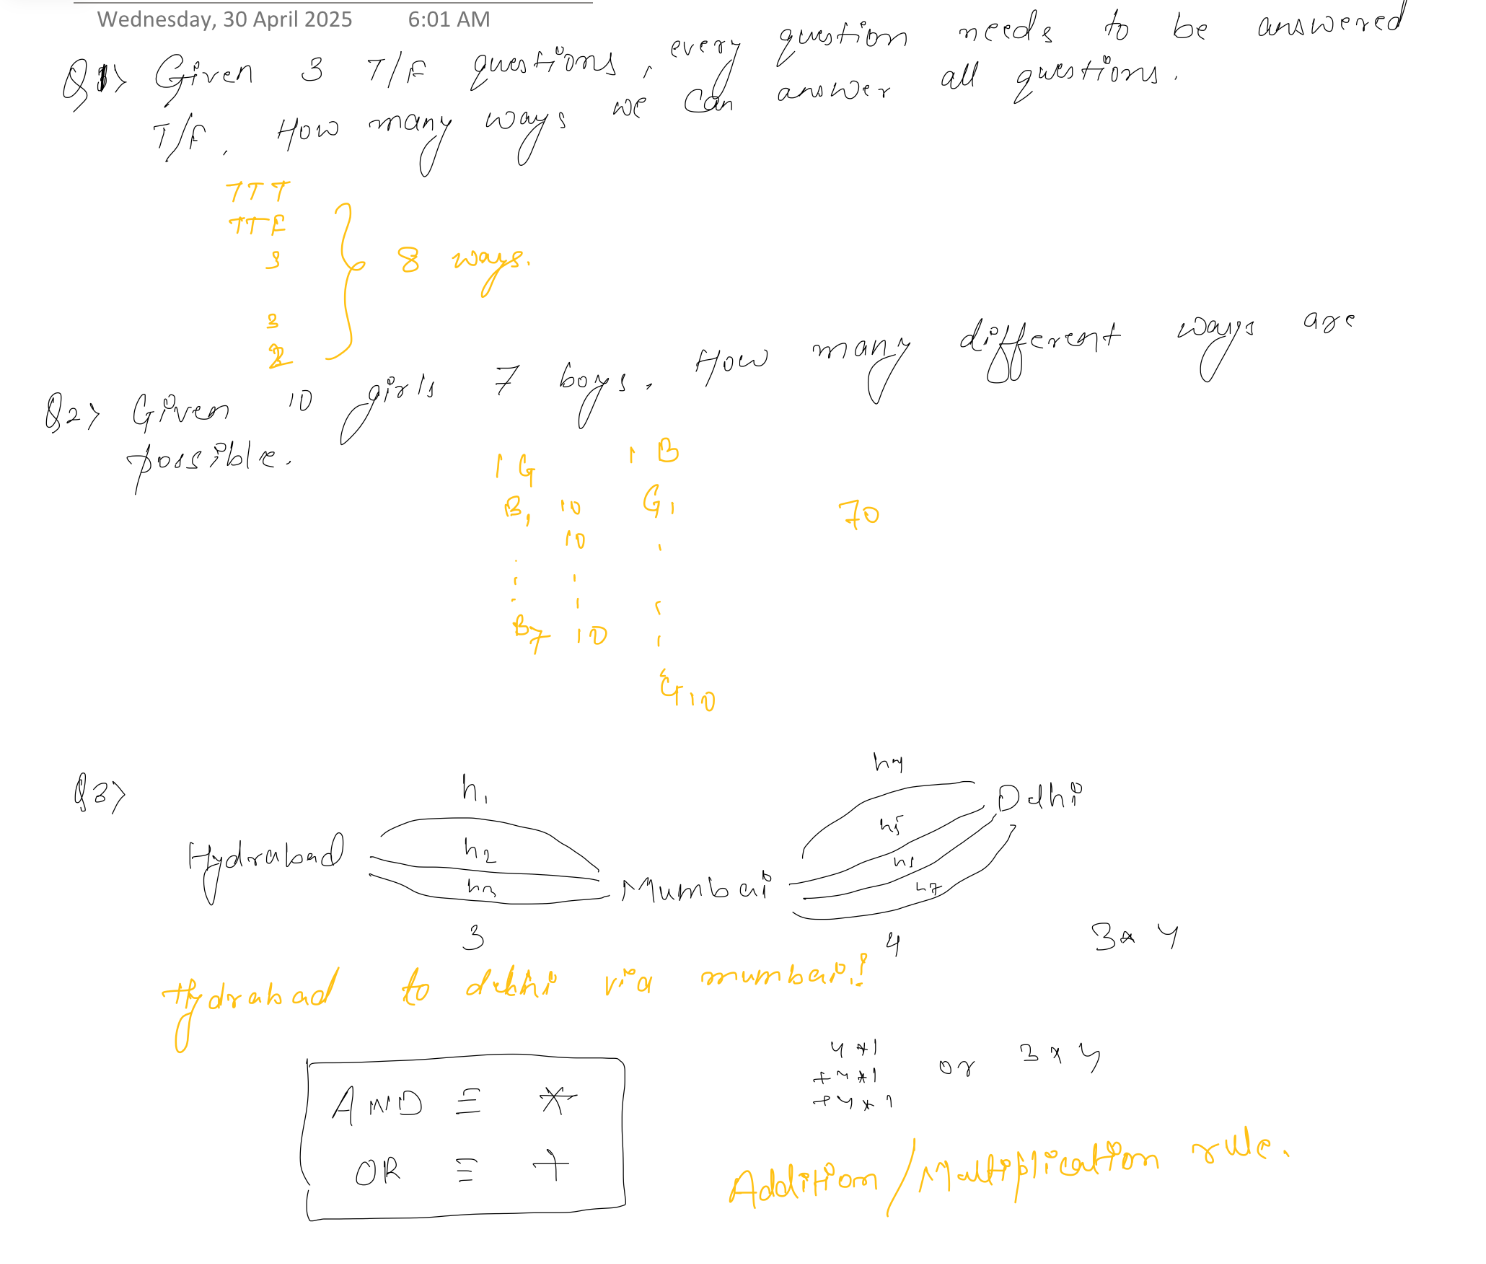 Wednesday, 30 April 2025 6:01 AM
Q1> Given 3 T/F questions, every question needs to be answered
T/F. How many ways we can answer all questions.
TTT
TTF
8 ways.
Q2> Given 10 girls 7 boys. How many different ways are
possible.
1 G 1 B
B1 10 G1 70
10
B7 10
G10
Q3>
h1 h4
Hydrabad h2 Mumbai h5 Delhi
h3 h7
3 4 3 * 4
Hydrabad to delhi via mumbai?
4 * 1
+ 4 * 1 or 3 * 4
+ 4 * 1
AND ≡ *
OR ≡ +
Addition / Multiplication rule.